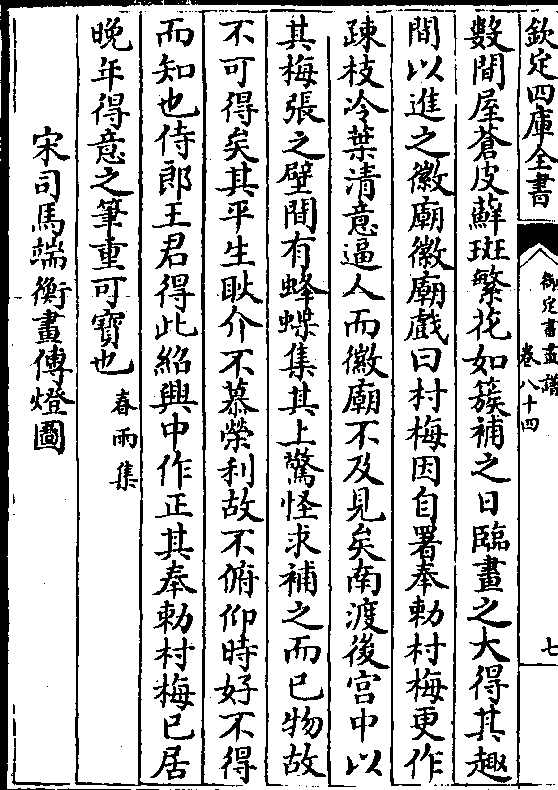 欽定四庫全書
御定書畫譜
卷八十四
七
數間屋蒼皮蘚斑繁花如簇補之日臨畫之大得其趣
間以進之徽廟徽廟戲曰村梅因自署奉勅村梅更作
疎枝冷葉清意逼人而徽廟不及見矣南渡後宫中以
其梅張之壁間有蜂蝶集其上驚怪求補之而已物故
不可得矣其平生耿介不慕榮利故不俯仰時好不得
而知也侍郎王君得此紹興中作正其奉勅村梅已居
晩年得意之筆重可寶也 春雨集
宋司馬端衡畫傳燈圖